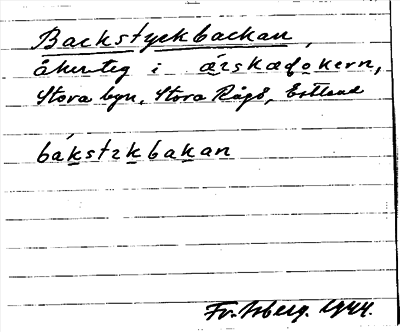 Backstyckbackan,
åkerteg i ærskædokern,
Stora byn, Stora Rågö, Estland
bakstikbakan
Fr. Isberg. 1944.